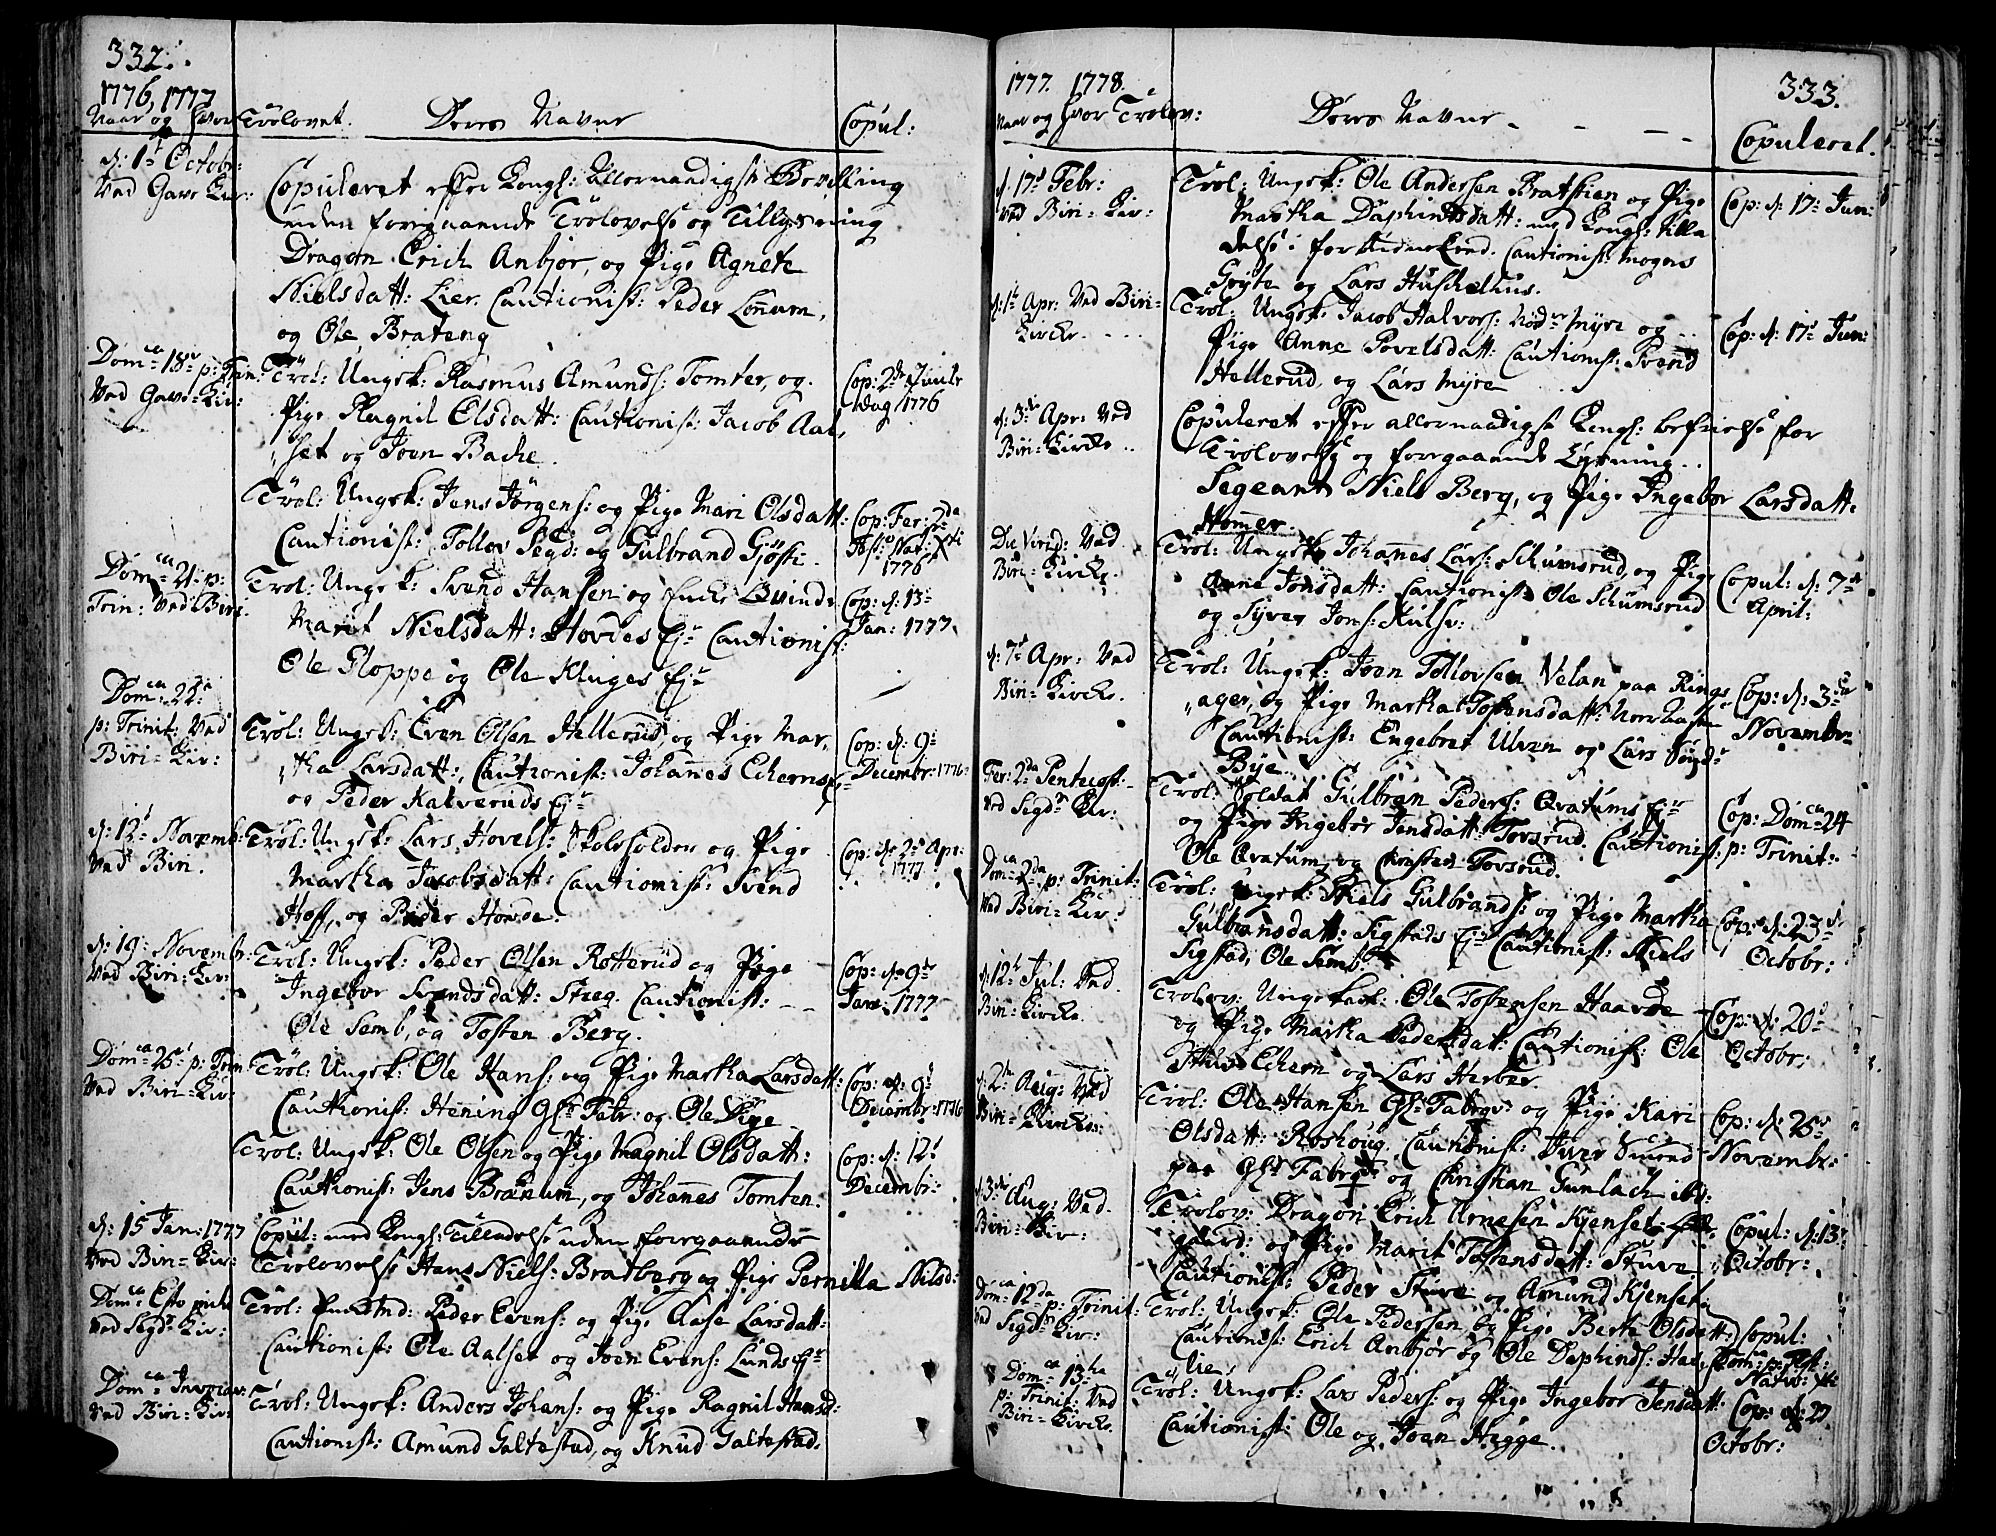 332.
1776, 1777
Naar og Hvor Trolovet. Deres Navne Copul:
d: 1t Octobr:
Ved Gavs Kir:
Copuleret efter Kongl: Allernaadigst Bevilling
uden foregaaende Trolovelse og Tillysning
Dragon Erich Anbjør, og Pige Agnete
Nielsdatt: Lier. Cautionist: Peder Lønum,
og Ole Brateng
Domca 18 p: Trin:
Ved Gavs-Kir:
Trol: Ungek: Rasmus Amunds: Tomter, og
Pige Ragnil Olsdatt: Cautionist: Jacob Aal,
set og Joen Bache.
Cop: 2den Juule
dag 1776
Trol: Ungek: Jens Jørgens: og Pige Mari Olsdatt:
Cautionist: Tollov Segd: og Gulbrand Gjøsti.
Cop: Fer: 2da
Fest: Nat: Xsti
1776
Domca 21 p:
Trin: Ved Biri.
Trol: Ungek: Svend Hansen og Enke Qvinde
Marit Nielsdatt: Hovdes Ejr Cautionist:
Ole Gloppe og Ole Kluges Ejr
Cop: d: 13
Jan: 1777
Domca 22
p: Trinit: Ved
Biri-Kir:
Trol: Ungek: Even Olsen Hellerud, og Pige Mar,
tha Larsdatt: Cautionist: Johannes Echerns
og Peder Kalveruds Ejr
Cop: d: 9
Decembr: 1776
d: 12t Novemb:
Ved Biri.
Trol: Ungek: Lars Hovels: Skoleholder og Pige
Martha Jacobsdatt: Cautionist: Svend
Hoff, og Peder Hovde.
Cop: d: 2 Apr:
1777
d: 19 Novemb:
Ved Biri: Kir:
Trol: Ungek: Peder Olsen Rotterud og Pige
Ingebor Svendsdatt: Streg. Cautionist:
Ole Semb, og Tosten Berg.
Cop: d: 9
Janr: 1777
Domca 25 p: Trin:
Ved Biri-Kir:
Trol: Ungek: Ole Hans: og Pige Martha Larsdatt:
Cautionist: Hening Gl: Fabr: og Ole Sige
Cop: d: 9
Decembr: 1776
Trol: Ungek: Ole Olsen og Pige Magnil Olsdatt:
Cautionist: Jens Brænum, og Johannes Tomten.
Cop: d: 12
Decembr:
d: 15 Jan: 1777
Ved Biri-Kir:
Copul: med Kongl: Tilladelse uden foregaaende
Trolovelse Hans Niels: Bratberg og Pige Pernilla Nilsd:
Domca Esto mihi
Ved Segd: Kir:
Trol: Peder Evens: og Pige Aase Larsdatt:
Cautionist: Ole Aalset og Joen Evens: Lunds Ejr
Domca Invocav:
Ved Biri-Kir:
Trol: Ungek: Anders Johans: og Pige Ragnil Hansd:
Cautionist: Amund Galtestad, og Knud Galtestad.
1777. 1778. 333.
Naar og Hvor Trolov: Deres Navne Copuleret.
d. 17 Febr:
Ved Biri-Kir:
Trol: Ungek: Ole Andersen Bratstien og Pige
Martha Daphindsdatt: med Kongl: Tilla
delse i Cautionist: Mogens
Gryte og Lars Huskelhus.
Cop: d: 17 Jun:
d: 1t Apr: Ved Biri-
Kirche.
Trol: Ungek: Jacob Halvors: Nødr Myre og
Pige Anne Povelsdatt: Cautionist: Svend
Hellerud, og Lars Myre
Cop: d: 17 Jun:
d: 3de Apr: Ved
Biri-Kirche
Copuleret efter allernaadigst Kongl: befrielse for
Trolovelse og foregaaende Lysning
Segeant Niels Berg, og Pige Ingebor Larsdatt:
Homer.
Die Virid: Ved
Biri-Kirche.
Trol: Ungek: Johannes Lars: Schumsrud og Pige
Anne Jonsdatt: Cautionist: Ole Schumsrud
og Syver Jons:
Copul: d: 7de
April:
d: 7 Apr: Ved
Biri-Kirche.
Trol: Ungek: Joen Tollovsen Velan paa Rings
ager, og Pige Martha Tostensdatt:
Cautionist: Engebret Ulven og Lars Sønd:
Bye.
Cop: d: 3
Novembr
Fer: 2da Pentecost:
Ved Segd: Kir:
Trol: Soldat Gulbran Peders: Qvatums Ejr
og Pige Ingebor Jensdatt: Torsrud. Cautionist:
Ole Qvatum, og Christen Torsrud.
Cop: Domca 24
p: Trinit:
Domca 2da p: Trinit:
Ved Biri-Kir:
Trol: Ungek: Niels Gulbrands: og Pige Martha
Gulbransdatt: Sigstads Ejr Cautionist: Niels
Sigstad, Ole Semb
Cop: d: 23
Octobr:
d: 12t Jul: Ved
Biri-Kirche.
Trolov: Ungekarl: Ole Tostensen Haavde
og Pige Martha Pedersdatt: Cautionist: Ole
Echern og Lars Herber
Cop: d: 20
Octobr:
d: 2den Aug: Ved
Biri-Kirche:
Trol: Ole Hansen Gl: Fabrqv: og Pige Kari
Olsdatt: Roskoug, Cautionist: Iver Smed
paa Gl: Fabrqv: og Christian Gunlach ibid:
Cop: d: 25
Novembr:
d: 3de Aug: Ved
Biri-Kir:
Trolov: Dragon Erich Arnesen Kjenset
gaard: og Pige Marit Tostensdatt: Stuve
Cautionist: Peder Stuve og Amund Kjenset
Copul: d: 13
Octobr:
Domca 12da p: Trinit:
Ved Segd: Kir:
Trol: Ungek: Ole Pedersen og Pige Berte Olsdatt:
Cautionist: Erich Anbjør og Ole Daphinds:
lie.
Copul:
Domca p: Fest:
Nativ: Xti
Domca 13tia
p: Trinit: Ved
Biri-Kirche.
Trol: Ungek: Lars Peders: og Pige Ingebor Jensdatt:
Cautionist: Ole og Joen Hegge.
Cop: d: 27
Octobr: